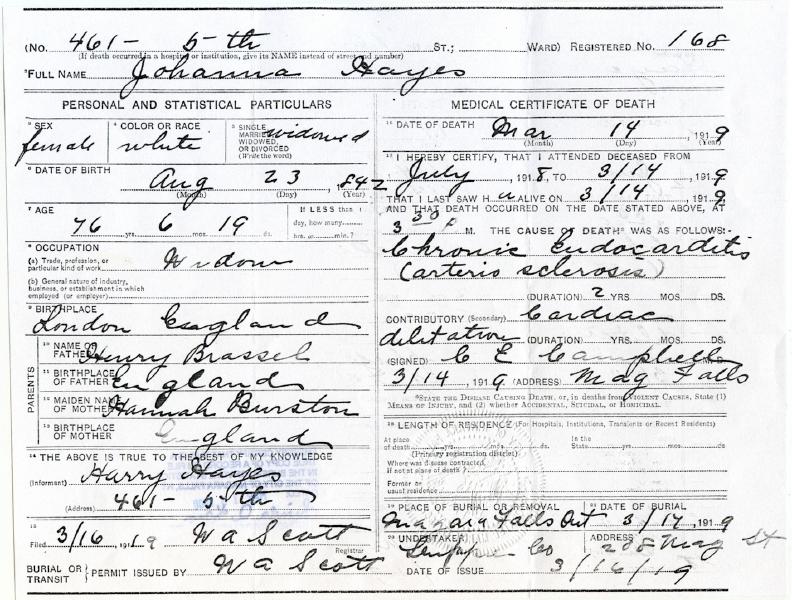 (No. 461- 5-th St.; Ward) Registered No. 168
(If death occurred in a hospital or institution, give its NAME instead of street and number)
2 FULL NAME Johanna Hayes
PERSONAL AND STATISTICAL PARTICULARS
3 SEX female
4 COLOR OR RACE white
5 SINGLE, MARRIED, WIDOWED, OR DIVORCED (Write the word) widowed
6 DATE OF BIRTH Aug 23, 1842
(Month) (Day) (Year)
7 AGE 76 yrs. 6 mos. 19 ds.
If LESS than 1 day, how many hrs. or min.?
8 OCCUPATION
(a) Trade, profession, or particular kind of work Widow
(b) General nature of industry, business, or establishment in which employed (or employer)
9 BIRTHPLACE
London England
PARENTS
10 NAME OF FATHER Henry Brassel
11 BIRTHPLACE OF FATHER England
12 MAIDEN NAME OF MOTHER Hannah Burston
13 BIRTHPLACE OF MOTHER England
14 THE ABOVE IS TRUE TO THE BEST OF MY KNOWLEDGE
(Informant) Harry Hayes
(Address) 461- 5-th
15
Filed 3/16, 1919 W A Scott
Registrar
BURIAL OR TRANSIT } PERMIT ISSUED BY W A Scott
MEDICAL CERTIFICATE OF DEATH
16 DATE OF DEATH Mar 14, 1919
(Month) (Day) (Year)
17 I HEREBY CERTIFY, THAT I ATTENDED DECEASED FROM
July 1918, TO 3/14 1919
THAT I LAST SAW H ALIVE ON 3/14 1919
AND THAT DEATH OCCURRED ON THE DATE STATED ABOVE, AT
3 30 P M. THE CAUSE OF DEATH* WAS AS FOLLOWS:-
Chronic Endocarditis
(arterio sclerosis)
(DURATION) 2 YRS. MOS. DS.
CONTRIBUTORY (Secondary) Cardiac
dilitation (DURATION) YRS. MOS. DS.
(SIGNED) C E Campbell M.D.
3/14, 1919 (ADDRESS) Niag Falls
*STATE THE DISEASE CAUSING DEATH, or, in deaths from VIOLENT CAUSES, State (1) MEANS OF INJURY, and (2) whether ACCIDENTAL, SUICIDAL, or HOMICIDAL.
18 LENGTH OF RESIDENCE (For Hospitals, Institutions, Transients or Recent Residents)
At place of death yrs. mos. ds. In the State yrs. mos. ds.
(Primary registration district)
Where was disease contracted, If not at place of death?
Former or usual residence
19 PLACE OF BURIAL OR REMOVAL Niagara Falls Ont
DATE OF BURIAL 3/17, 1919
20 UNDERTAKER Co
ADDRESS 208 Niag St
DATE OF ISSUE 3/16/19